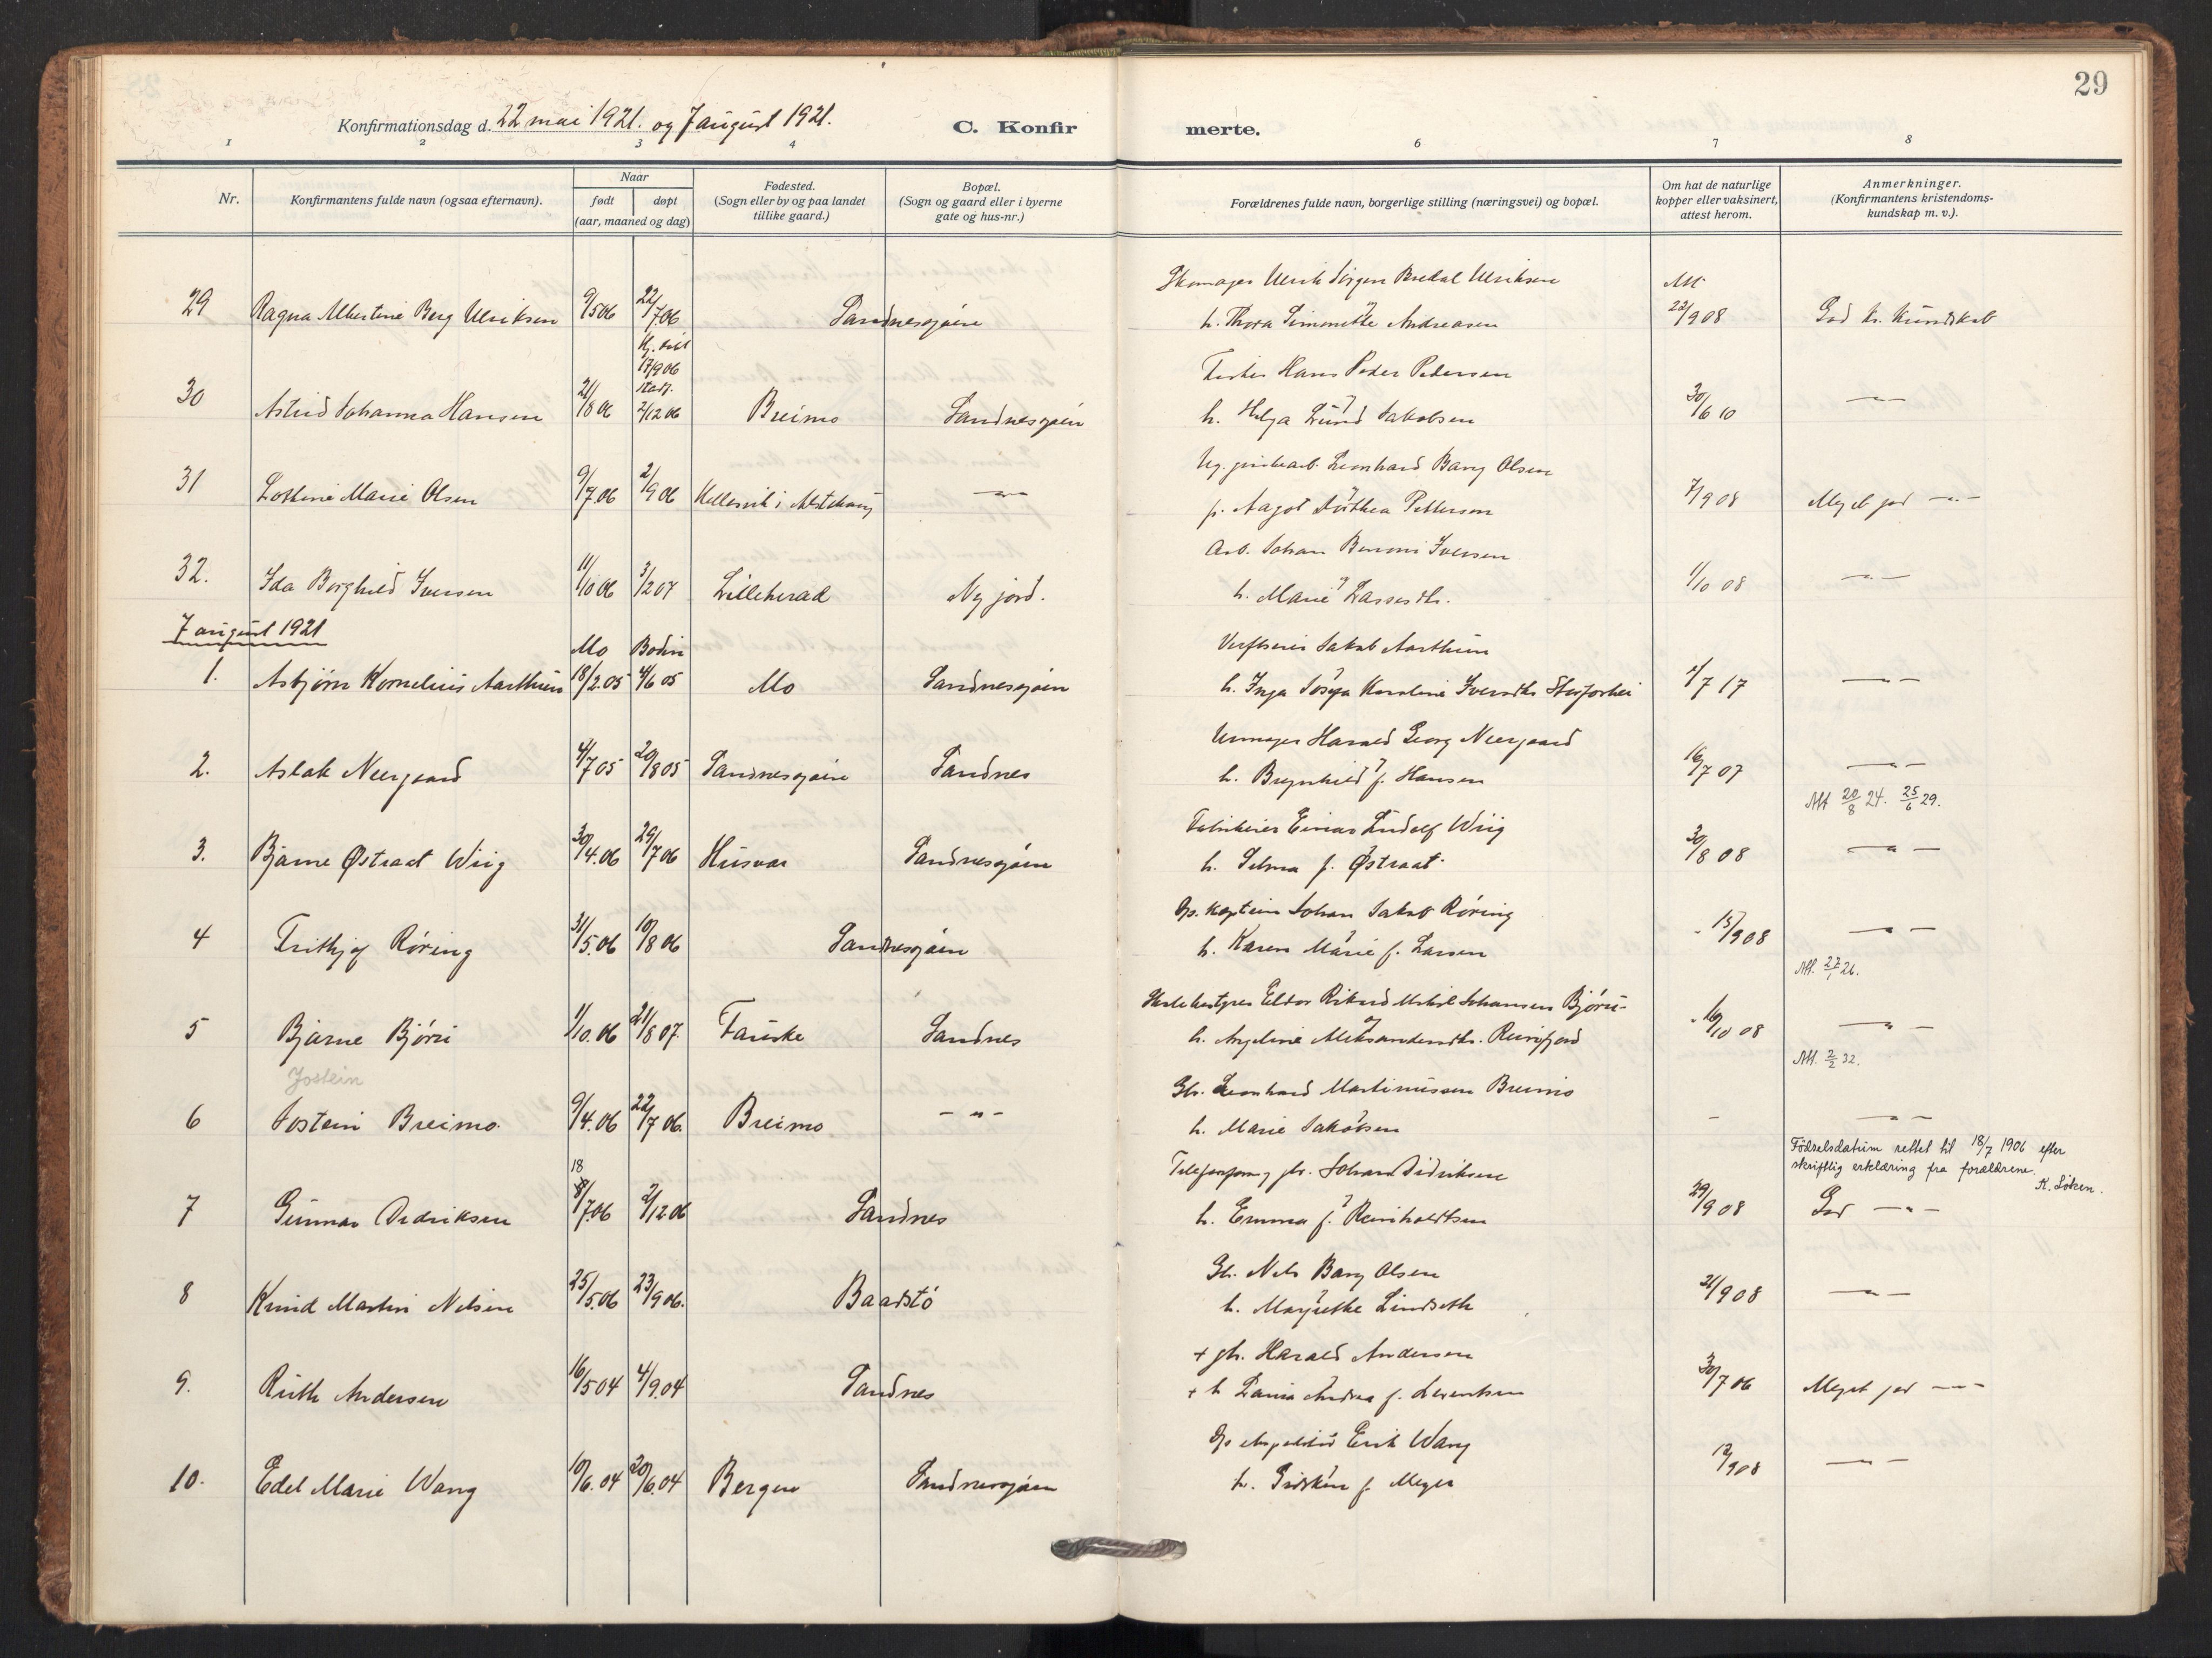 29
Konfirmationsdag d. 22 mai 1921. og 7 august 1921.
C. Konfirmerte.
1 2 3 4 6 7 8
Nr.
Konfirmantens fulde navn (ogsaa efternavn).
Naar
født døpt
(aar, maaned og dag)
Fødested.
(Sogn eller by og paa landet
tillike gaard.)
Bopæl.
(Sogn og gaard eller i byerne
gate og hus-nr.)
Forældrenes fulde navn, borgerlige stilling (næringsvei) og bopæl.
Om hat de naturlige
kopper eller vaksinert,
attest herom.
Anmerkninger.
(Konfirmantens kristendoms-
kundskap m. v.).
Skomager Ulrik Jørgen Bredal Ulriksen Att
29 Ragna Albertine Berg Ulriksen 9/5 06 22/7.06 Sandnessjøen h. Thora Simonette Andreasen 22/9 08 God kr. kundskab
Hj. døbt
17/9 06
stadf.
Fisker Hans Peder Pedersen
30 Astrid Johanna Hansen 21/8 06 2/12 06 Breimo Sandnessjøen h. Helga Lund Jakobsen 30/6 10 —"—
Ug. Leonhard Bang Olsen
31 Lottine Marie Olsen 9/7.06 2/9 06 i Alstahaug —"— p. Aagot Dorthea Pettersen 7/9 08 Meget god —"—
Arb. Johan Benoni Iversen
32. Ida Borghild Iversen 11/10 06 3/2 07 Lilleherad Nyjord. h. Marie Lassesdtr. 1/10 08 —"—
7 august 1921
Mo Bodin
Jakob Aarthun
1. Asbjørn Kornelius Aarthun 18/2.05 4/6 05 Mo Sandnessjøen h. Inga Josefa Karoline Iversdtr. 2/7 17 —"—
Urmager Harald Georg Neergaard
2. Aslak Neergaard 4/7 05 20/8 05 Sandnessjøen Sandnes h. Brynhild f. Hansen 16/7 07 —"—
Att 20/8 24. 25/6 29.
Fabrikeier Einar Ludolf Wiig
3. Bjarne Østraat Wiig 30/4.06 29/7 06 Husvær Sandnessjøen h. Selma f. Østraat 30/8 08 —"—
Dps. kaptein Johan Jakob Røring
4 Frithjof Røring 31/5.06 10/8 06 Sandnessjøen h. Karen Marie f. Larsen 15/9 08 —"—
Att. 27/1 26.
Skolebestyrer Eldor Rikard Mikal Johansen Bjøru
5 Bjarne Bjøru 1/10.06 21/8 07. Fauske Sandnes h. Angeline Aleksandersdtr. 10/10 08 —"—
Att. 2/2 32.
Jostein
Gbr. Leonhard Martinussen Breimo
6 Jostein Breimo. 9/4.06 22/7 06. Breimo -"- h. Marie Jakobsen - —"—
Fødselsdatum rettet til 18/7 1906 efter
skriftlig erklæring fra forældrene.
K. Løken.
18
gbr. Johan Didriksen
7 Gunnar Didriksen 8/7.06 2/12 06 Sandnes h. Emma f. Reinholdtsen 29/9 08 God —"—
Gb. Nils Bang Olsen
8 Knud Martin Nilsen 25/5.06 23/9 06. Baadstø h. Margrethe Lindseth 21/9 08 —"—
+ gbr. Harald Andersen
9. Ruth Andersen 16/5 04 4/9.04 Sandnes + h Andrea f. Lorentsen 30/7 06 Meget god —"—
Erik Wang
10. Edel Marie Wang 10/6.04 20/6.04 Bergen Sandnessjøen h. f. Meyer 12/9 08 —"—